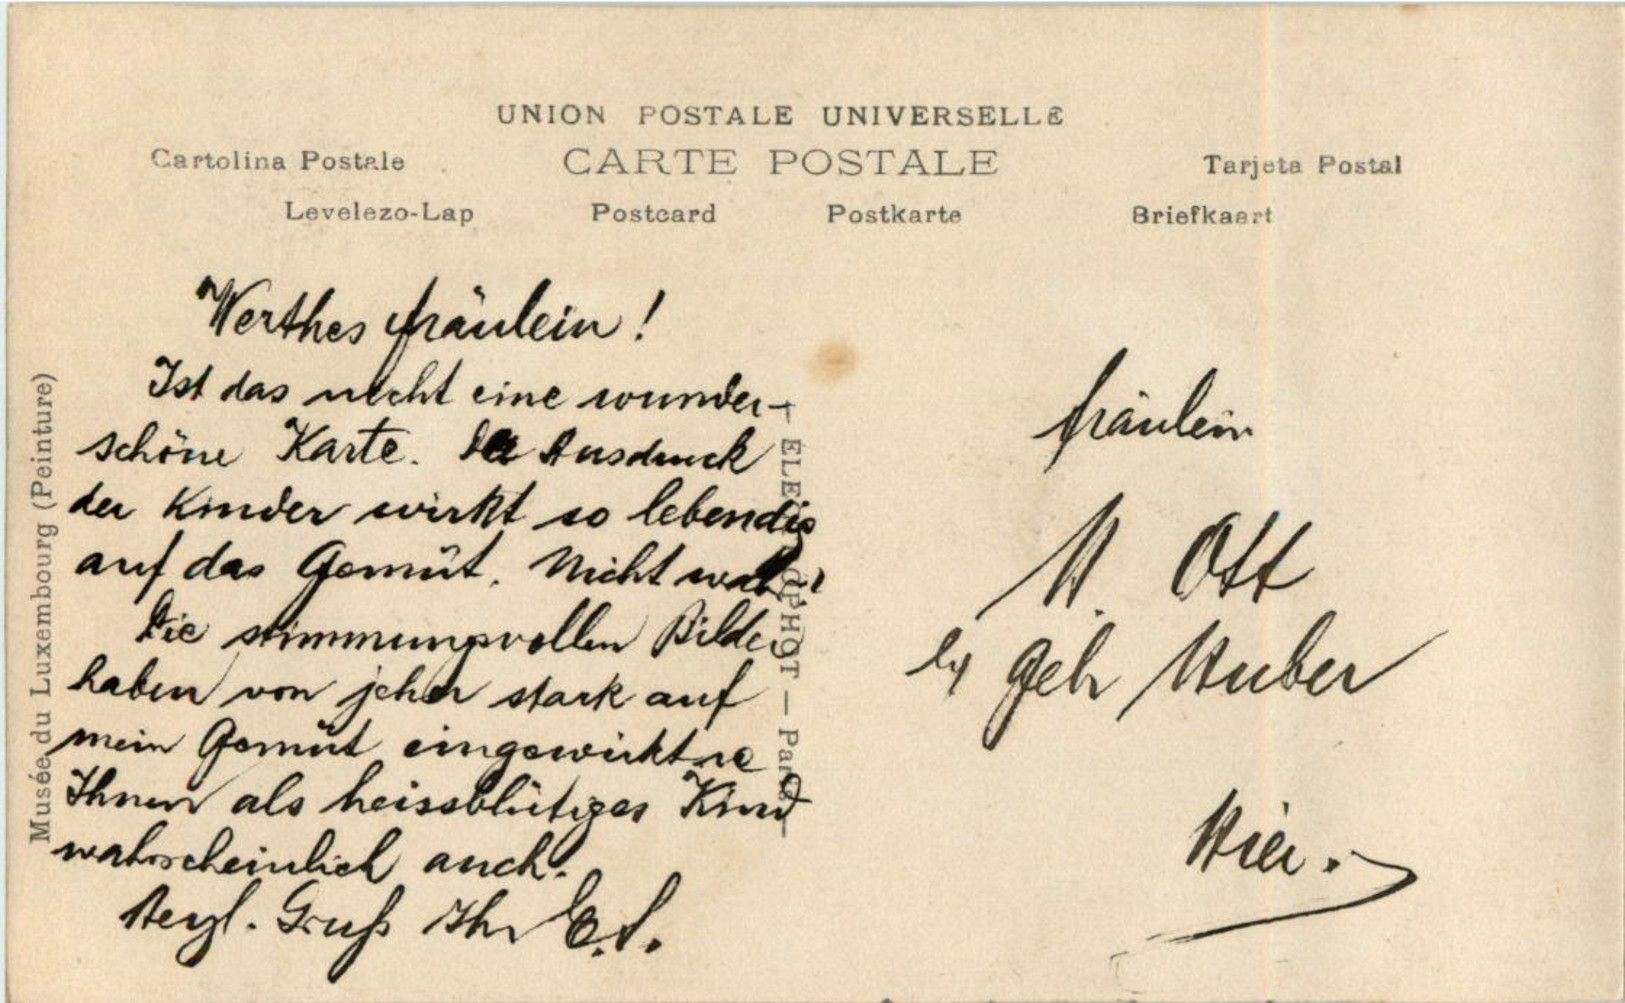 UNION POSTALE UNIVERSELLE
CARTE POSTALE
Cartolina Postale
Tarjeta Postal
Levelezo-Lap
Postcard
Postkarte
Briefkaart
Musée du Luxembourg (Peinture)
Werthes Fräulein!
Ist das nicht eine wunder-
schöne Karte. Der Ausdruck
der Kinder wirkt so lebendig
auf das Gemüt. Nicht wahr?
Die stimmungsvollen Bilder
haben von jeher stark auf
mein Gemüt eingewirkt
Ihnen als heissblütiges Kind
wahrscheinlich auch.
Herzl. Gruß Ihr E.S.
— Paris —
Fräulein
M. Ott
Geb Huber
Hier.